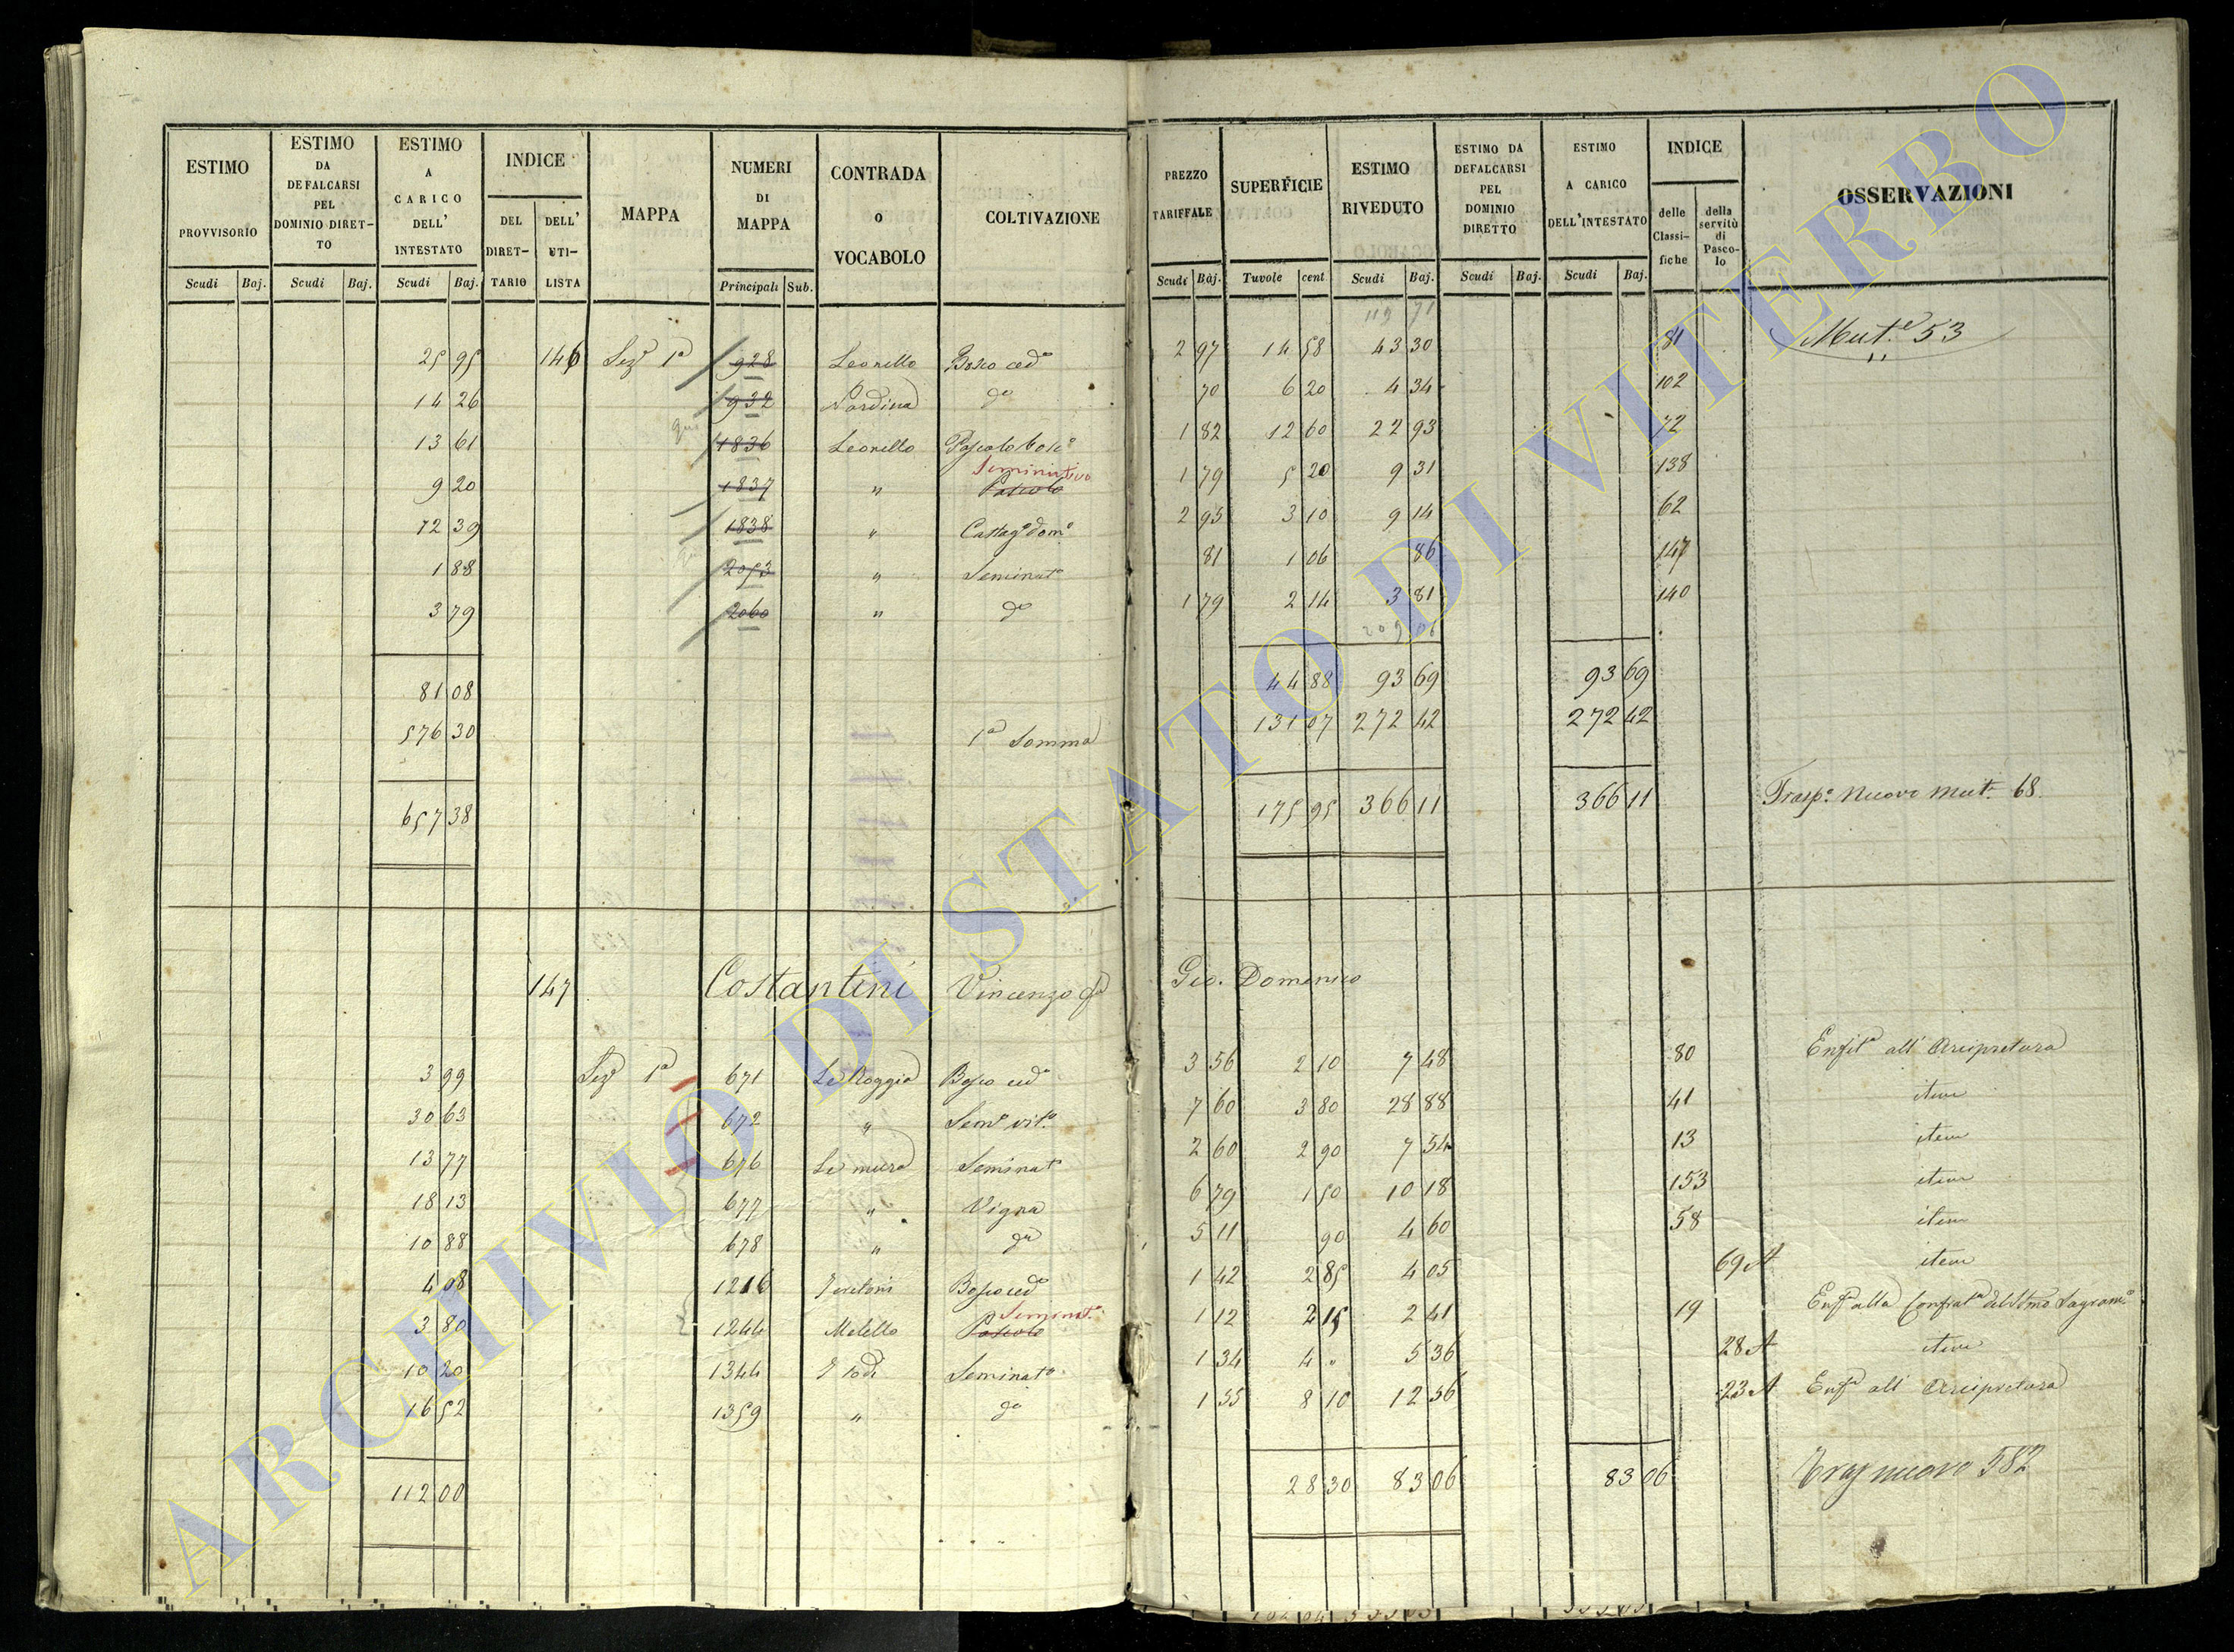 ESTIMO PROVVISORIO
Scudi Baj.
ESTIMO DA DEFALCARSI PEL DOMINIO DIRET-TO
Scudi Baj.
ESTIMO A CARICO DELL' INTESTATO
Scudi Baj.
INDICE
DEL DIRET-TARIO
DELL' UTI-LISTA
MAPPA
NUMERI DI MAPPA
Principali Sub.
CONTRADA O VOCABOLO
COLTIVAZIONE
PREZZO TARIFFALE
Scudi Baj.
SUPERFICIE
Tavole cent.
ESTIMO RIVEDUTO
Scudi Baj.
ESTIMO DA DEFALCARSI PEL DOMINIO DIRETTO
Scudi Baj.
ESTIMO A CARICO DELL'INTESTATO
Scudi Baj.
INDICE
delle Classi-fiche
della servitù di Pasco-lo
OSSERVAZIONI
113 71
25 95 146 Sezᵉ 1ᵃ 928 Leonello Bosco cedᵒ 2 97 14 58 43 30 81 Mutᵉ 53
14 26 932 Nardina dᵒ 70 6 20 4 34 102
13 61 1836 Leonello Pascolo boscᵒ 1 82 12 60 22 93 72
Seminativo
9 20 1837 " Pascolo 1 79 5 20 9 31 138
12 39 1838 " Castagᵒ domᵒ 2 95 3 10 9 14 62
1 88 2053 " Seminatᵒ 81 1 06 86 147
3 79 2060 " dᵒ 1 79 2 14 3 81 140
209 06
81 08 44 88 93 69 93 69
576 30 1ᵃ Somma 131 07 272 42 272 42
657 38 175 95 366 11 366 11 Traspᵒ nuovo mutᵉ 68
147 Costantini Vincenzo qᵐ Gio. Domenico
3 99 Sezᵉ 1ᵃ 671 Le Roggia Bosco cedᵒ 3 56 2 10 7 48 80 Enfitᵃ all' Arcipretura
30 63 672 " Semᵒ vitᵒ 7 60 3 80 28 88 41 item
13 77 676 Le mura Seminatᵒ 2 60 2 90 7 54 13 item
18 13 677 " Vigna 6 79 1 50 10 18 153 item
10 88 678 " dᵃ 5 11 90 4 60 58 item
4 08 1216 Bosco cedᵒ 1 42 2 85 4 05 69 A item
Seminatᵒ
3 80 1244 Melello Pascolo 1 12 2 15 2 41 19 Enfᵃ alla Confratᵃ del SSmo Sagramᵒ
10 20 1344 Seminatᵒ 1 34 4 " 5 36 28 A item
16 52 1359 " dᵒ 1 55 8 10 12 56 23 A Enfᵃ all' Arcipretura
112 00 28 30 83 06 83 06 Trasp nuovo 582
ARCHIVIO DI STATO DI VITERBO